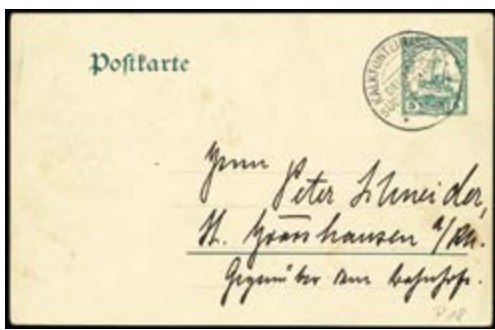 Postkarte
KALKFONTEIN
5 5
Herrn
Peter Schneider,
St. Goarshausen a/Rh.
Gegenüber dem Bahnhofe.
P 18